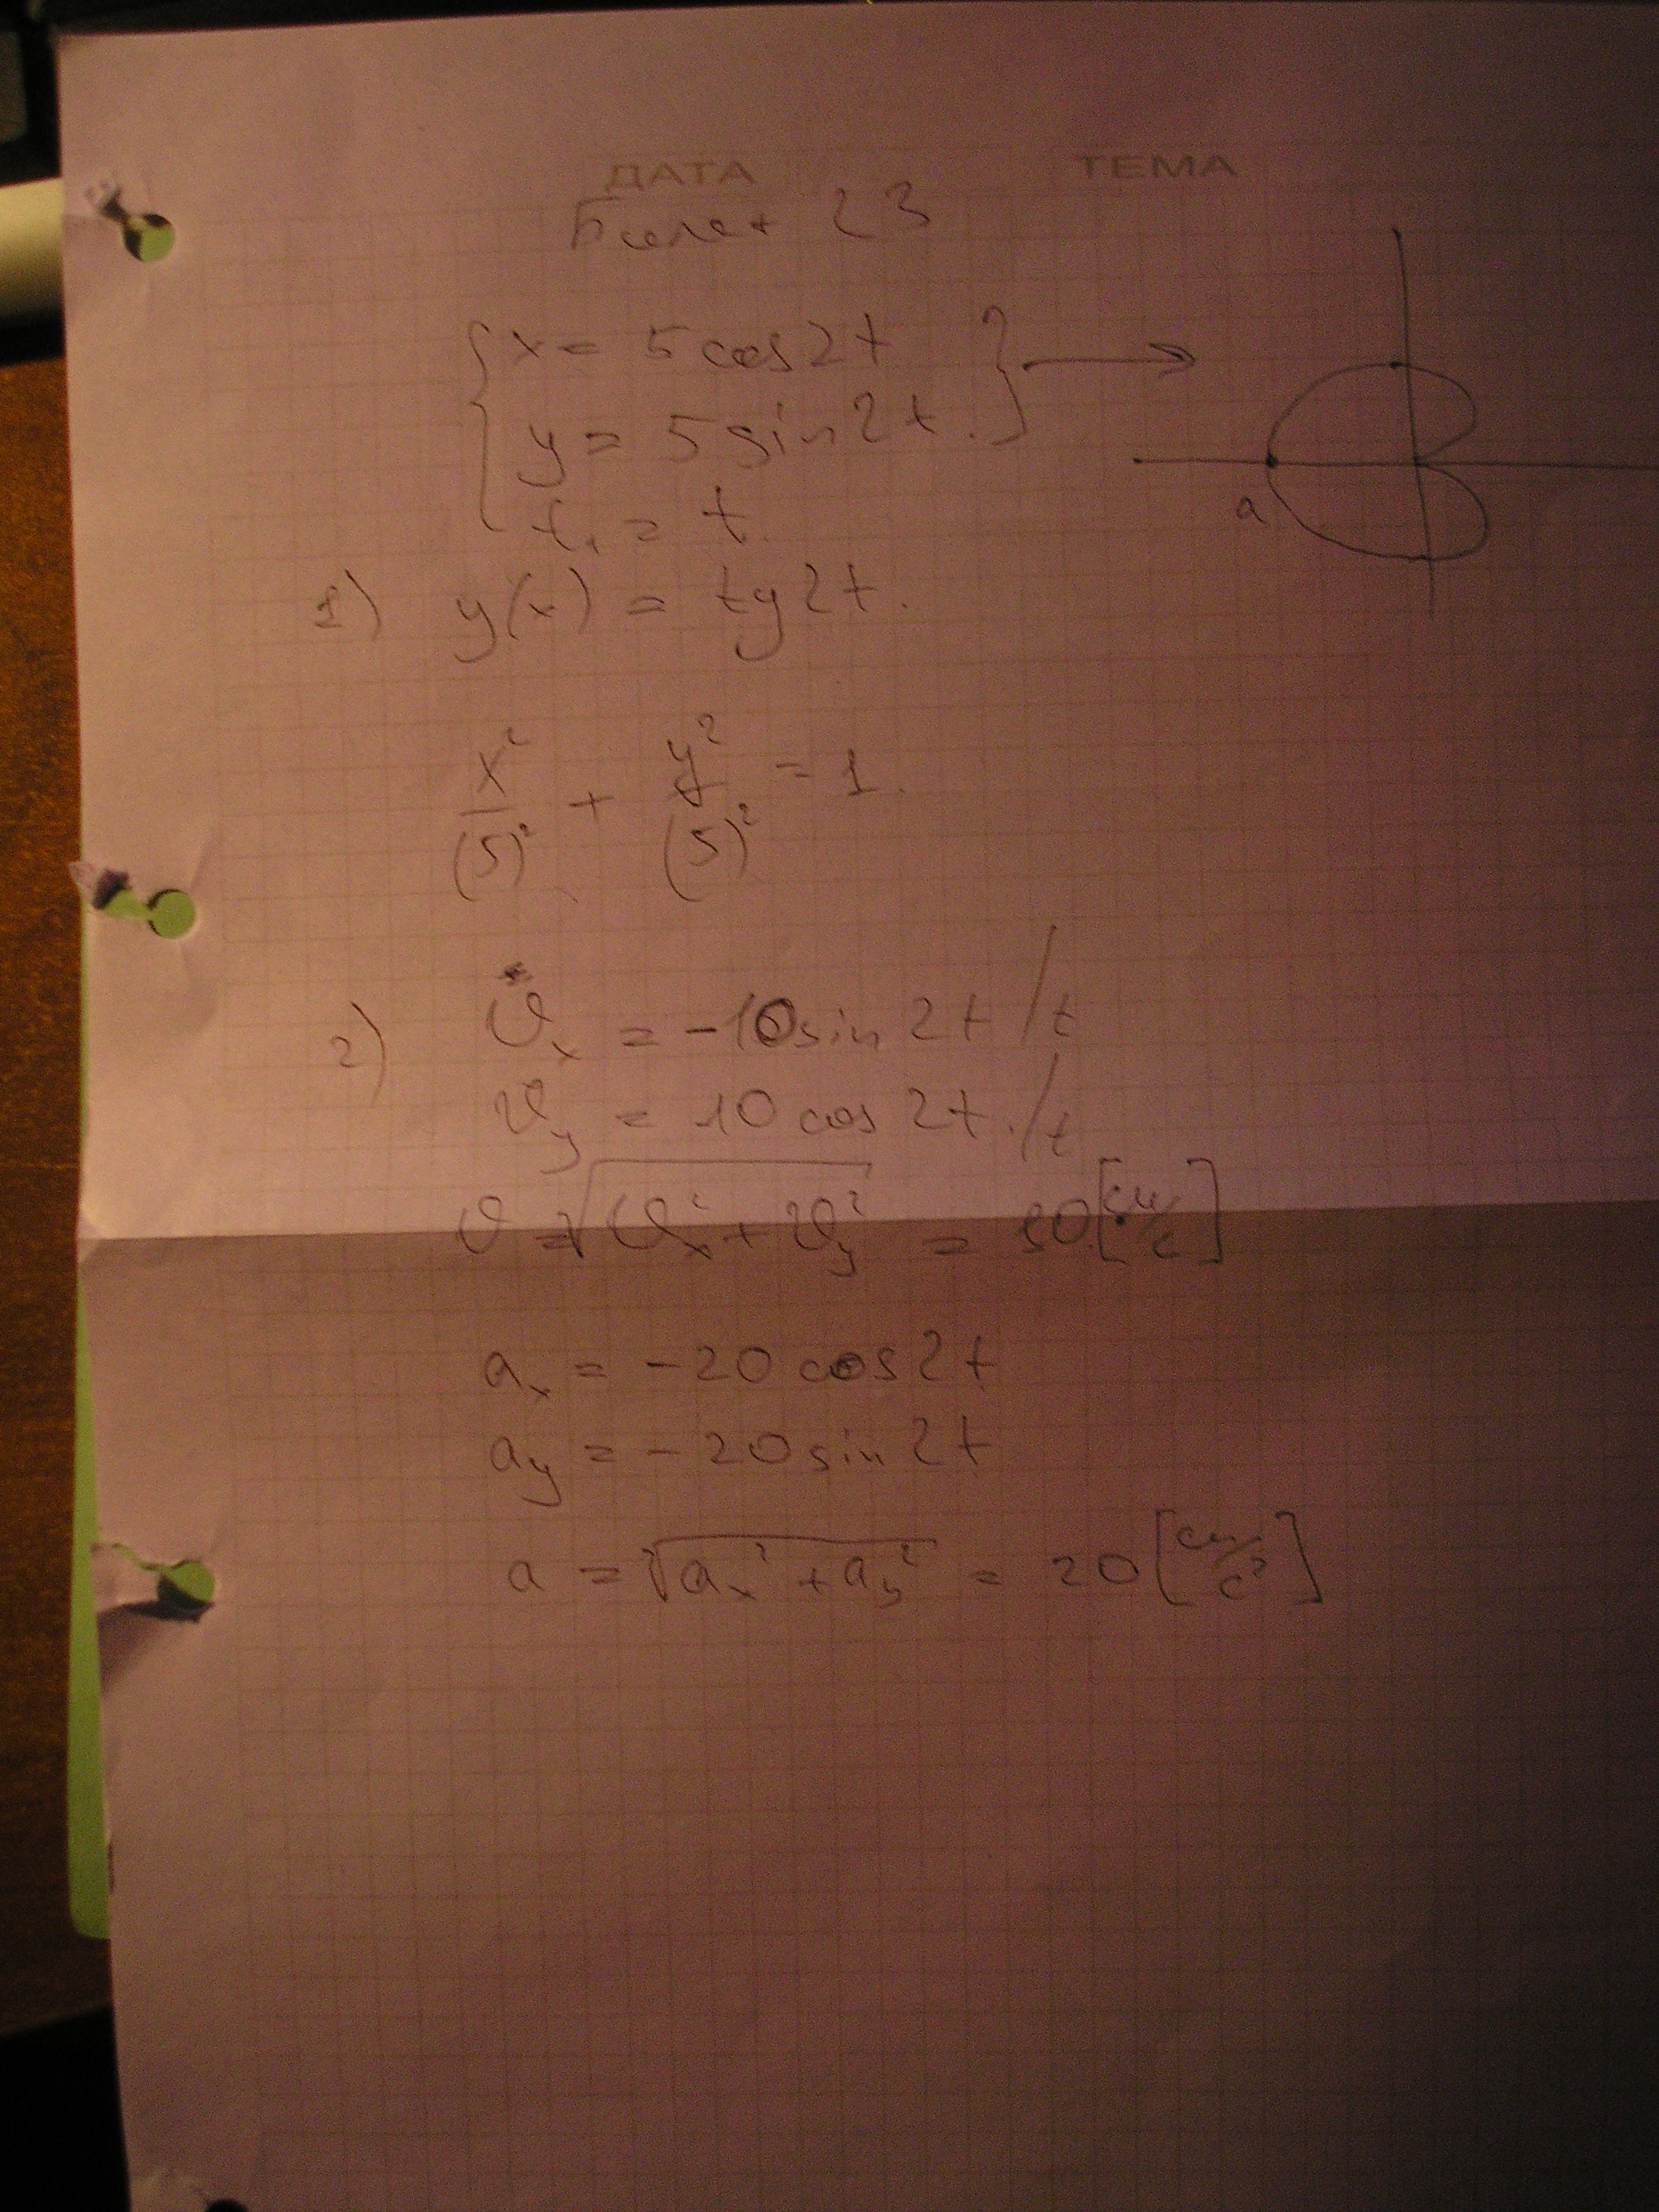 ДАТА ТЕМА
Билет 23
x = 5 cos 2t
y = 5 sin 2t.
t₁ = t.
a
1) y(x) = tg 2t.
x²/(5)² + y²/(5)² = 1.
2) υx = -10 sin 2t /t
υy = 10 cos 2t. /t
υ = √(υx² + υy²) = 10 [см/с]
ax = -20 cos 2t
ay = -20 sin 2t
a = √(ax² + ay²) = 20 [см/с²]